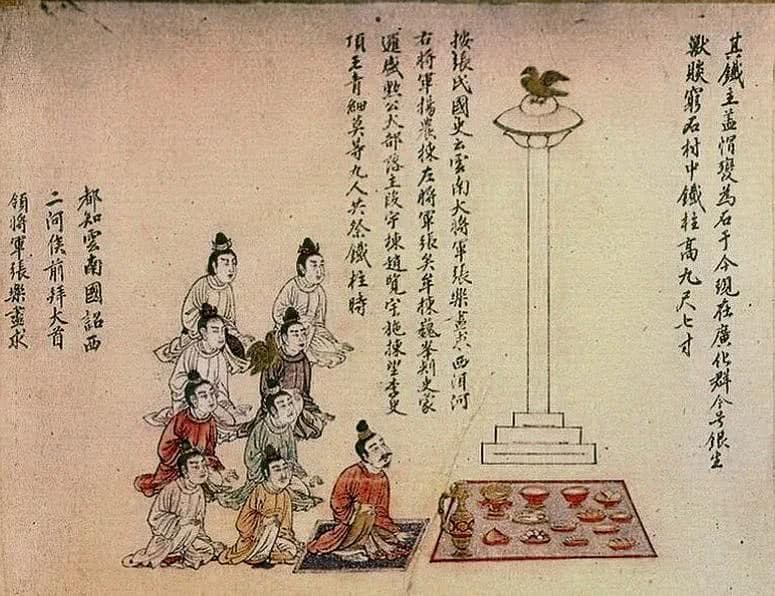 其鐵主盖帽變為石于今現在廣化群今号銀生
獸賧窮石村中鐵柱高九尺七寸
按張氏國史云雲南大將軍張樂盡求西洱河
右將軍揚農棟左將軍張矣牟棟巍峯刾史蒙
邏盛勲公大部落主段宇棟趙覽宗施棟望李史
頂王青細莫等九人共祭鐵柱時
都知雲南國詔西
二河侯前拜大首
領將軍張樂盡求